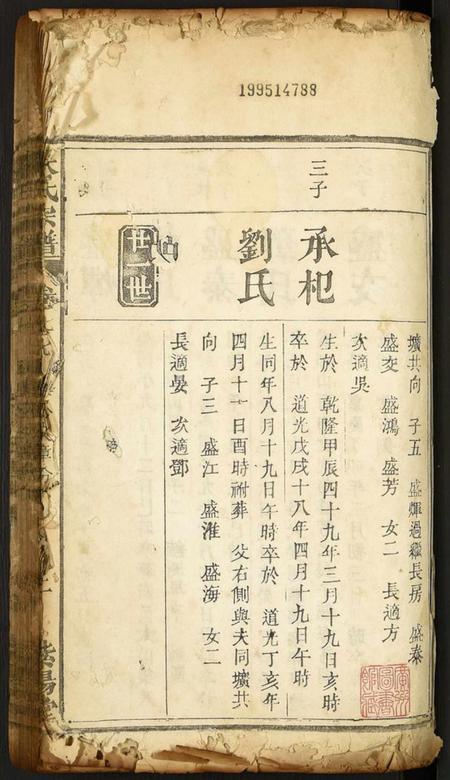 199514788
三子
承杞
劉氏
世世
壙共向 子五 盛煇過繼長房 盛泰
盛交 盛鴻 盛芳 女二 長適方
次適吳
生於 乾隆甲辰四十九年三月十九日亥時
卒於 道光戊戌十八年四月十九日午時
生同年八月十九日午時卒於 道光丁亥年
四月十一日酉時祔葬 父右側與夫同壙共
向 子三 盛江 盛淮 盛海 女二
長適晏 次適鄧
氏宗譜